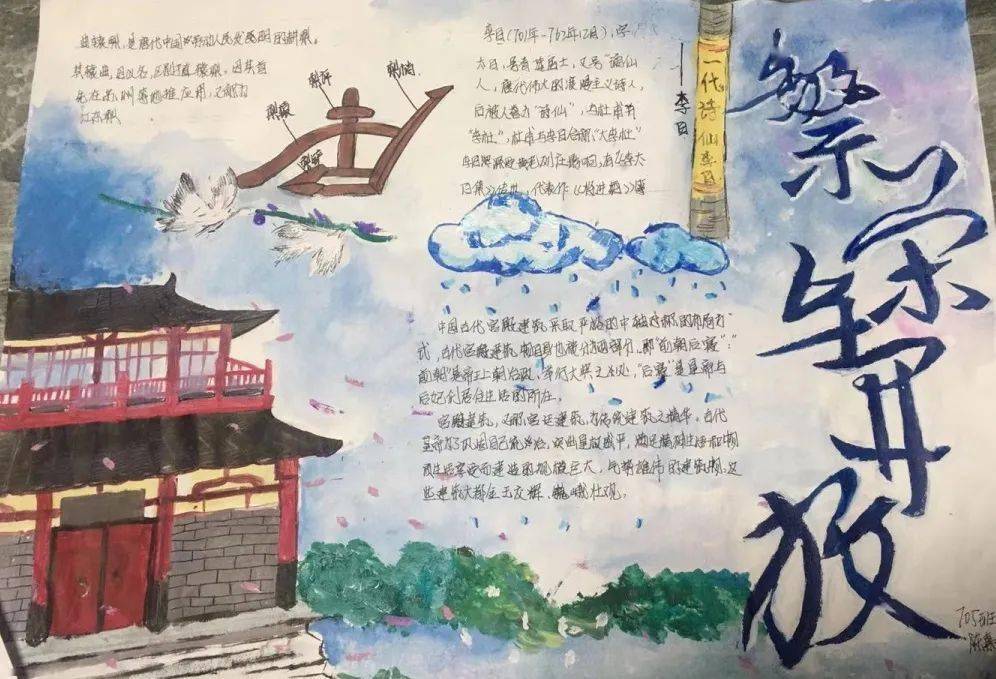 曲辕犁,是唐代中国劳动人民发明的耕犁。
其辕曲,因以名,区别于直辕犁。因其首
先在苏州等地推应用,又称为
江东犁
犁评
犁梢
犁辕
李白(701年-762年12月),字
太白,号青莲居士,又号“谪仙
人”,唐代伟大的浪漫主义诗人,
后被人誉为“诗仙”,与杜甫并
“李杜”,杜甫与李白合称“大李杜”
李白 有《李太
白集》传世,代表作《将进酒》等
——李白
一代诗仙李白
中国古代宫殿建筑采取严格的中轴对称的布局方
式,古代宫殿建筑物自身也被分为两部分,即“前朝后寝”:“
前朝”是帝王上朝治政、举行大典之处,“后寝”是皇帝与
后妃们居住生活的所在。
宫殿建筑,又称宫廷建筑,为传统建筑之精华。古代
皇帝为了巩固自己的统治,突出皇权威严,满足精神生活和物
质生活享受而建造的规模巨大、气势雄伟的建筑物,这
些建筑大都金玉交辉、巍峨壮观。
繁荣与开放
705班